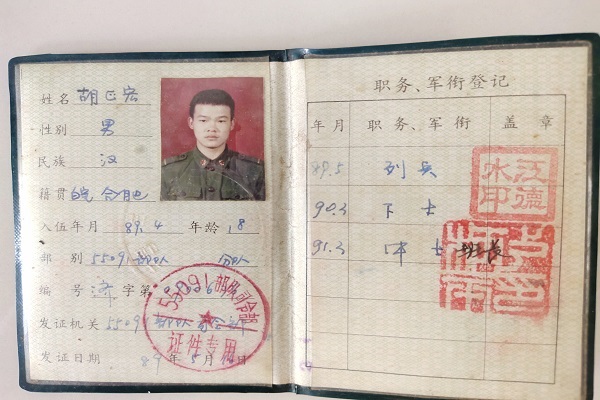 姓名 胡正宏
性别 男
民族 汉
籍贯 皖 合肥
入伍年月 89.4 年龄 18
部别 55091部队 分队
编号 济字第
发证机关 55091部队司令部
发证日期 89年5月
55091部队司令部
证件专用
职务、军衔登记
年月 职务、军衔 盖章
89.5 列兵
90.3 下士
91.3 中士 班长